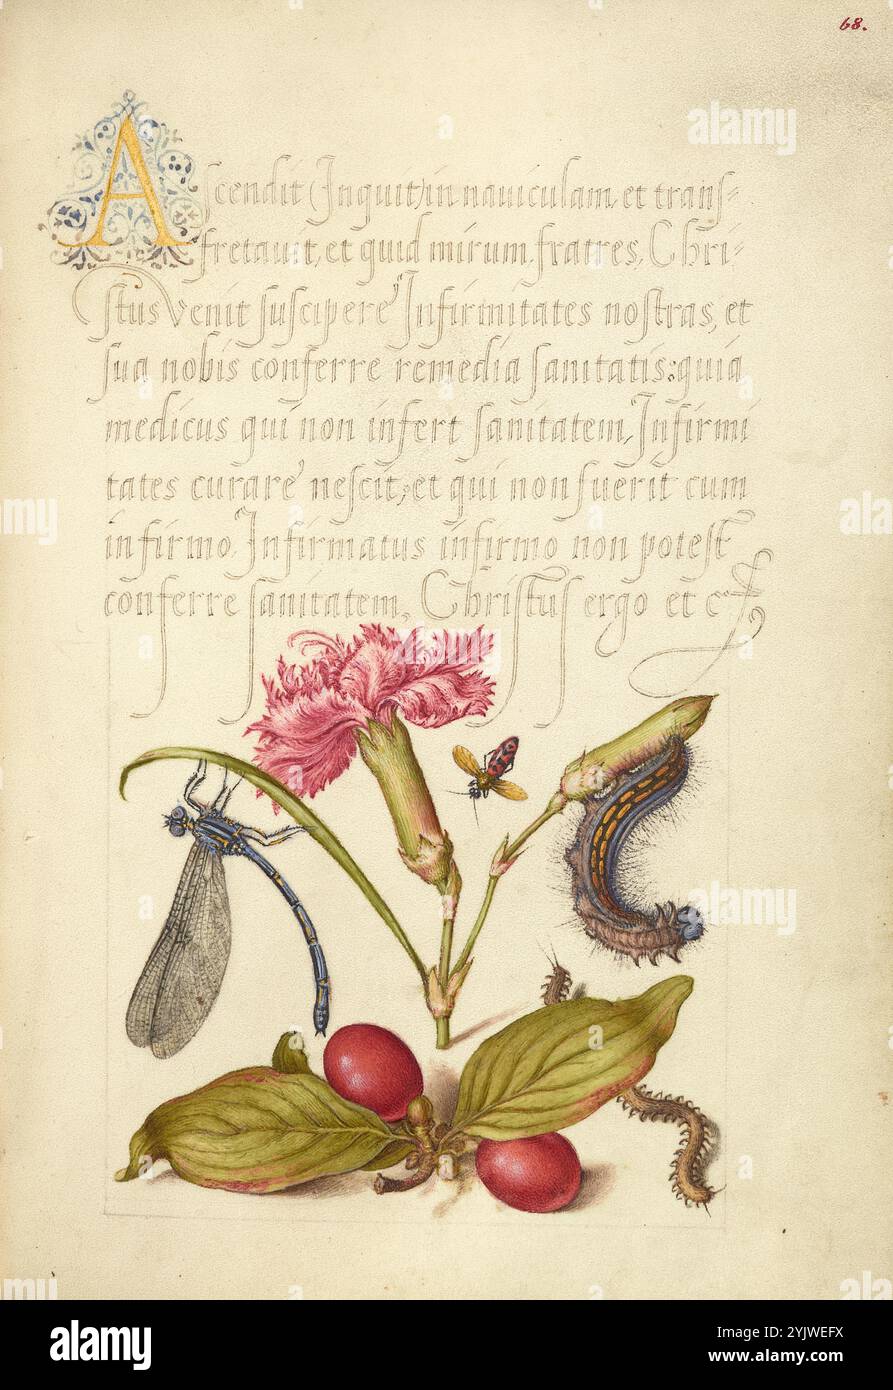 68.
Ascendit (Inquit) in nauiculam, et transſ=
fretauit, et quid mirum fratres, Chri=
ſtus venit ſuſcipere Infirmitates noſtras, et
ſua nobis conferre remedia ſanitatis: quia
medicus qui non infert ſanitatem, Infirmi
tates curare neſcit, et qui non fuerit cum
infirmo Infirmatus infirmo non poteſt
conferre ſanitatem, Chriſtuſ ergo et c.
alamy
Image ID: 2YJWEFX
www.alamy.com